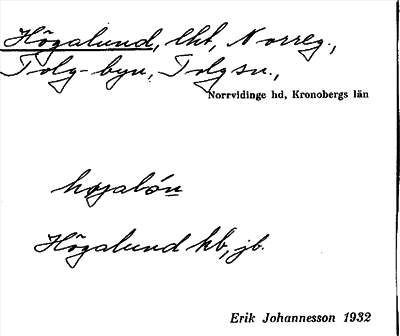 Högalund, lht, Norreg.,
Tolg-byn, Tolg sn.,
Norrvidinge hd, Kronobergs län
Högalund kb, jb.
Erik Johannesson 1932